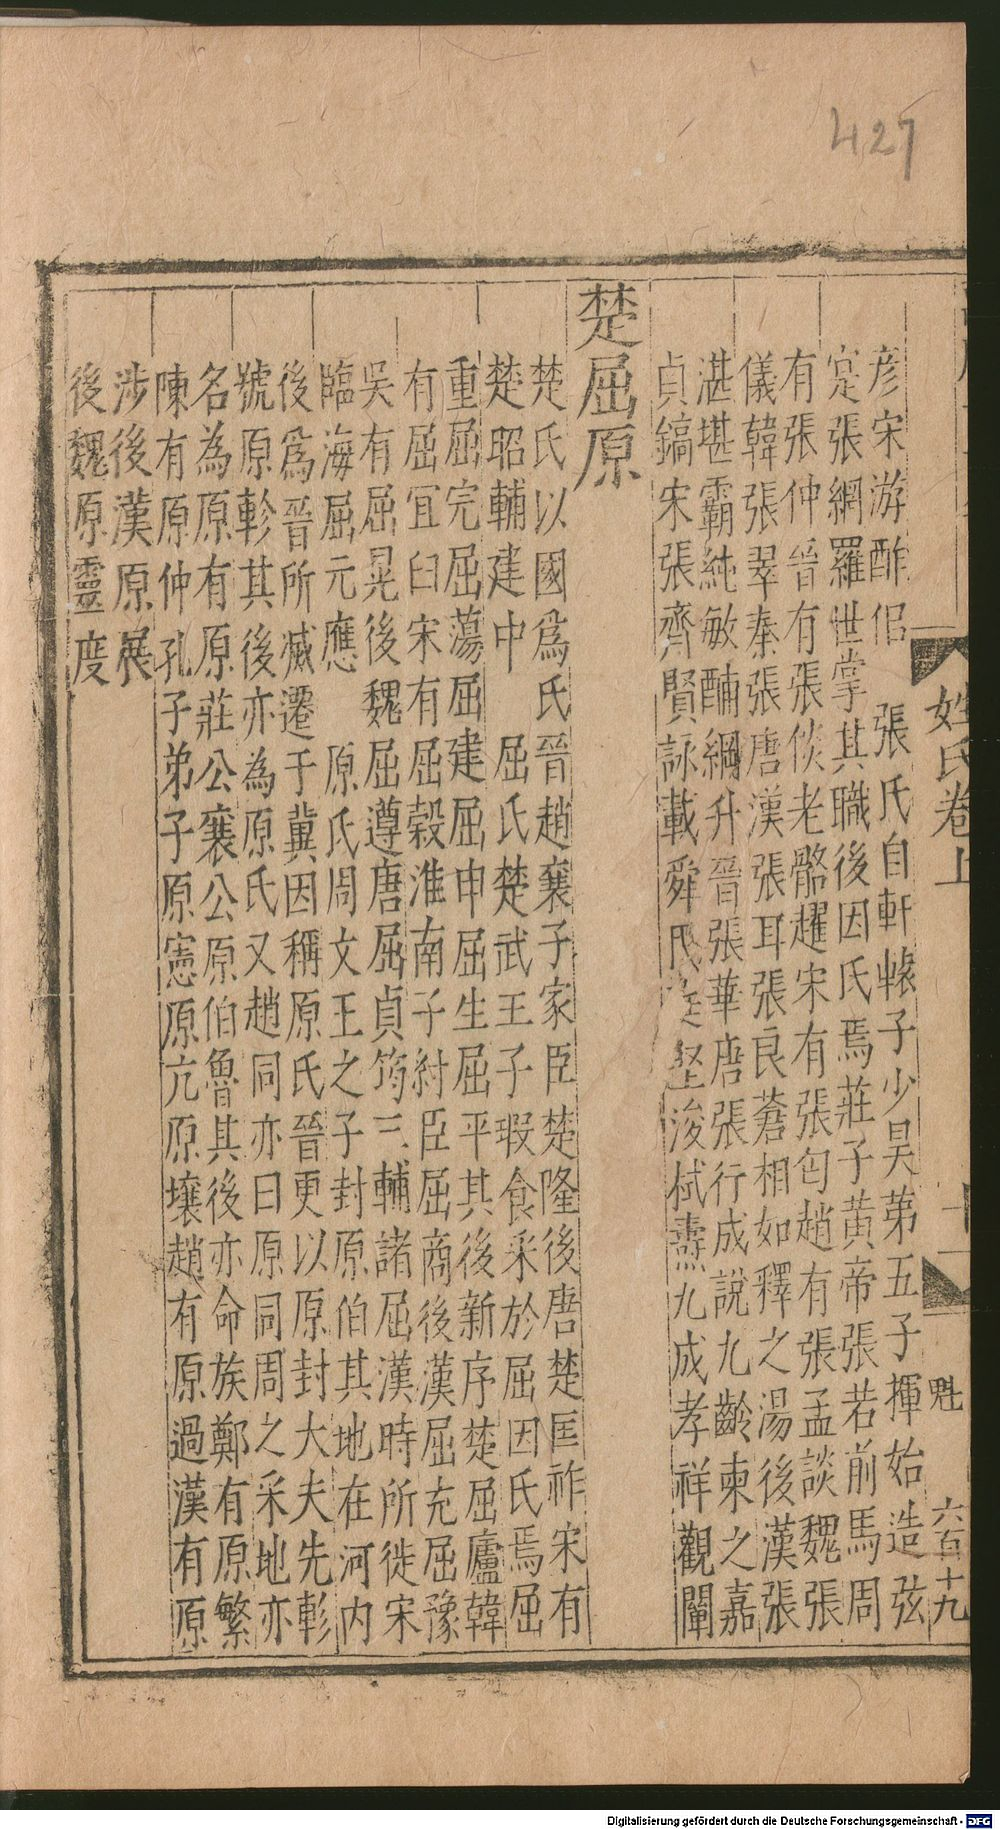 427
姓氏卷上
十一
魁
六百十九
彦宋游酢侣　張氏自軒轅子少昊第五子揮始造弦
寔張網羅世掌其職後因氏焉莊子黄帝張若前馬周
有張仲晉有張倓老骼趯宋有張匄趙有張孟談魏張
儀韓張翠秦張唐漢張耳張良蒼相如釋之湯後漢張
湛堪霸純敏酺綱升晉張華唐張行成說九齡柬之嘉
貞鎬宋張齊賢詠載舜民庭堅浚栻燾九成孝祥觀闡
楚屈原
楚氏以國爲氏晉趙襄子家臣楚隆後唐楚匡祚宋有
楚昭輔建中　屈氏楚武王子瑕食采於屈因氏焉屈
重屈完屈蕩屈建屈申屈生屈平其後新序楚屈廬韓
有屈宜臼宋有屈穀淮南子紂臣屈商後漢屈充屈豫
吳有屈晃後魏屈遵唐屈貞筠三輔諸屈漢時所徙宋
臨海屈元應　原氏周文王之子封原伯其地在河内
後爲晉所滅遷于冀因稱原氏晉更以原封大夫先軫
號原軫其後亦為原氏又趙同亦曰原同周之采地亦
名為原有原莊公襄公原伯魯其後亦命族鄭有原繁
陳有原仲孔子弟子原憲原亢原壤趙有原過漢有原
涉後漢原展
後魏原靈度
Digitalisierung gefördert durch die Deutsche Forschungsgemeinschaft - DFG